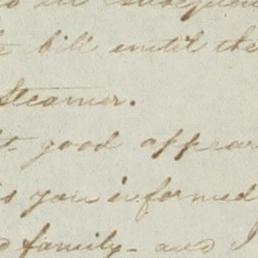 in subsequen
bill until the
Steamer.
good appear
you informed
family - and I